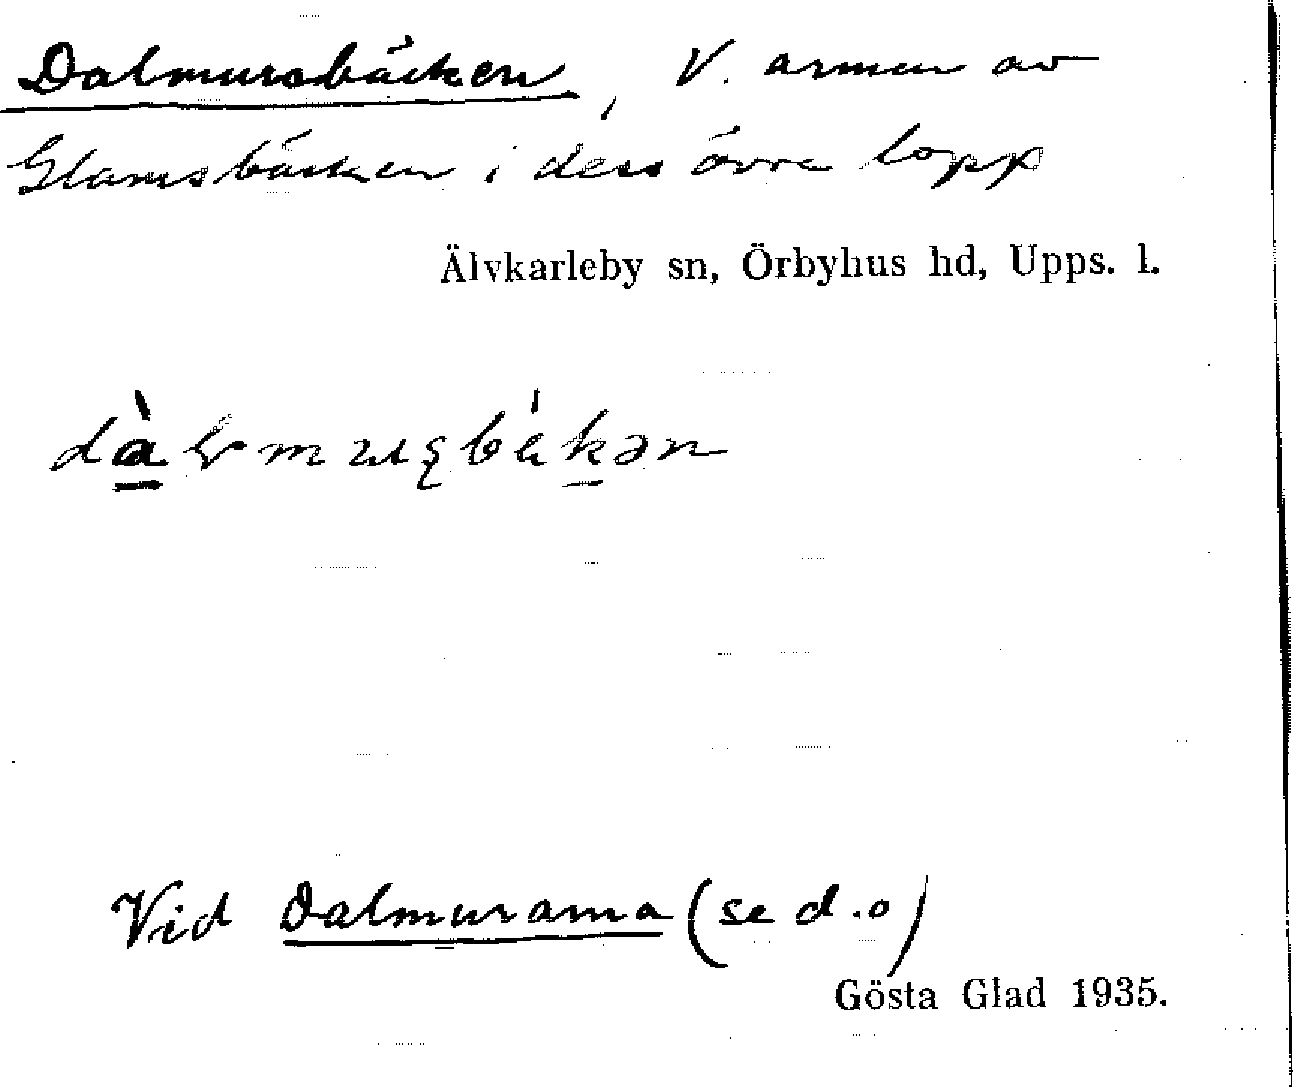 Dalmursbäcken, V. armen av
Glamsbäcken i dess övre lopp
Älvkarleby sn, Örbyhus hd, Upps. l.
Vid Dalmurarna (se d.o)
Gösta Glad 1935.